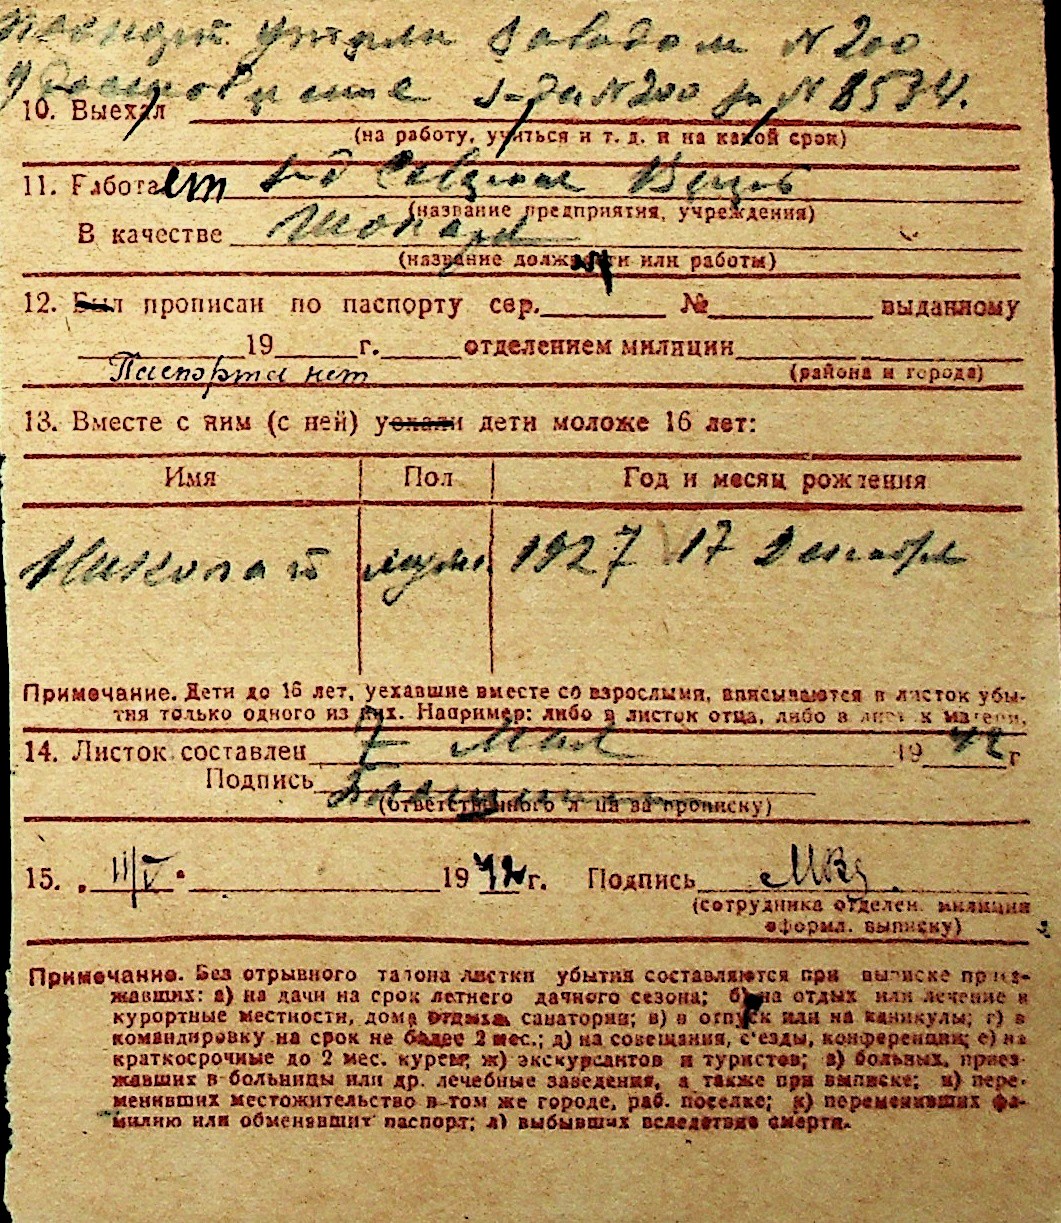 заводом N 200
N 200 N 8534.
10. Выехал
(на работу, учиться и т. д. и на какой срок)
11. Работает
(название предприятия, учреждения)
В качестве
(название должности или работы)
12. Был прописан по паспорту сер. № выданному
19 г. отделением милиции
Паспорта нет (района и города)
13. Вместе с ним (с ней) уехали дети моложе 16 лет:
Имя Пол Год и месяц рождения
Николай муж. 1927 17 Декабря
Примечание. Дети до 16 лет, уехавшие вместе со взрослыми, вписываются в листок убы-
тия только одного из них. Например: либо в листок отца, либо в листок матери.
14. Листок составлен 7 Мая 1942 г
Подпись
(ответственного лица за прописку)
15. 11/V 1942 г. Подпись
(сотрудника отделен. милиции
оформл. выписку)
Примечание. Без отрывного талона листки убытия составляются при выписке приез-
жавших: а) на дачи на срок летнего дачного сезона; б) на отдых или лечение в
курортные местности, дома отдыха, санатории; в) в отпуск или на каникулы; г) в
командировку на срок не более 2 мес.; д) на совещания, с'езды, конференции; е) на
краткосрочные до 2 мес. курсы; ж) экскурсантов и туристов; з) больных, приез-
жавших в больницы или др. лечебные заведения, а также при выписке; и) пере-
менивших местожительство в том же городе, раб. поселке; к) переменивших фа-
милию или обменявших паспорт; л) выбывших вследствие смерти.